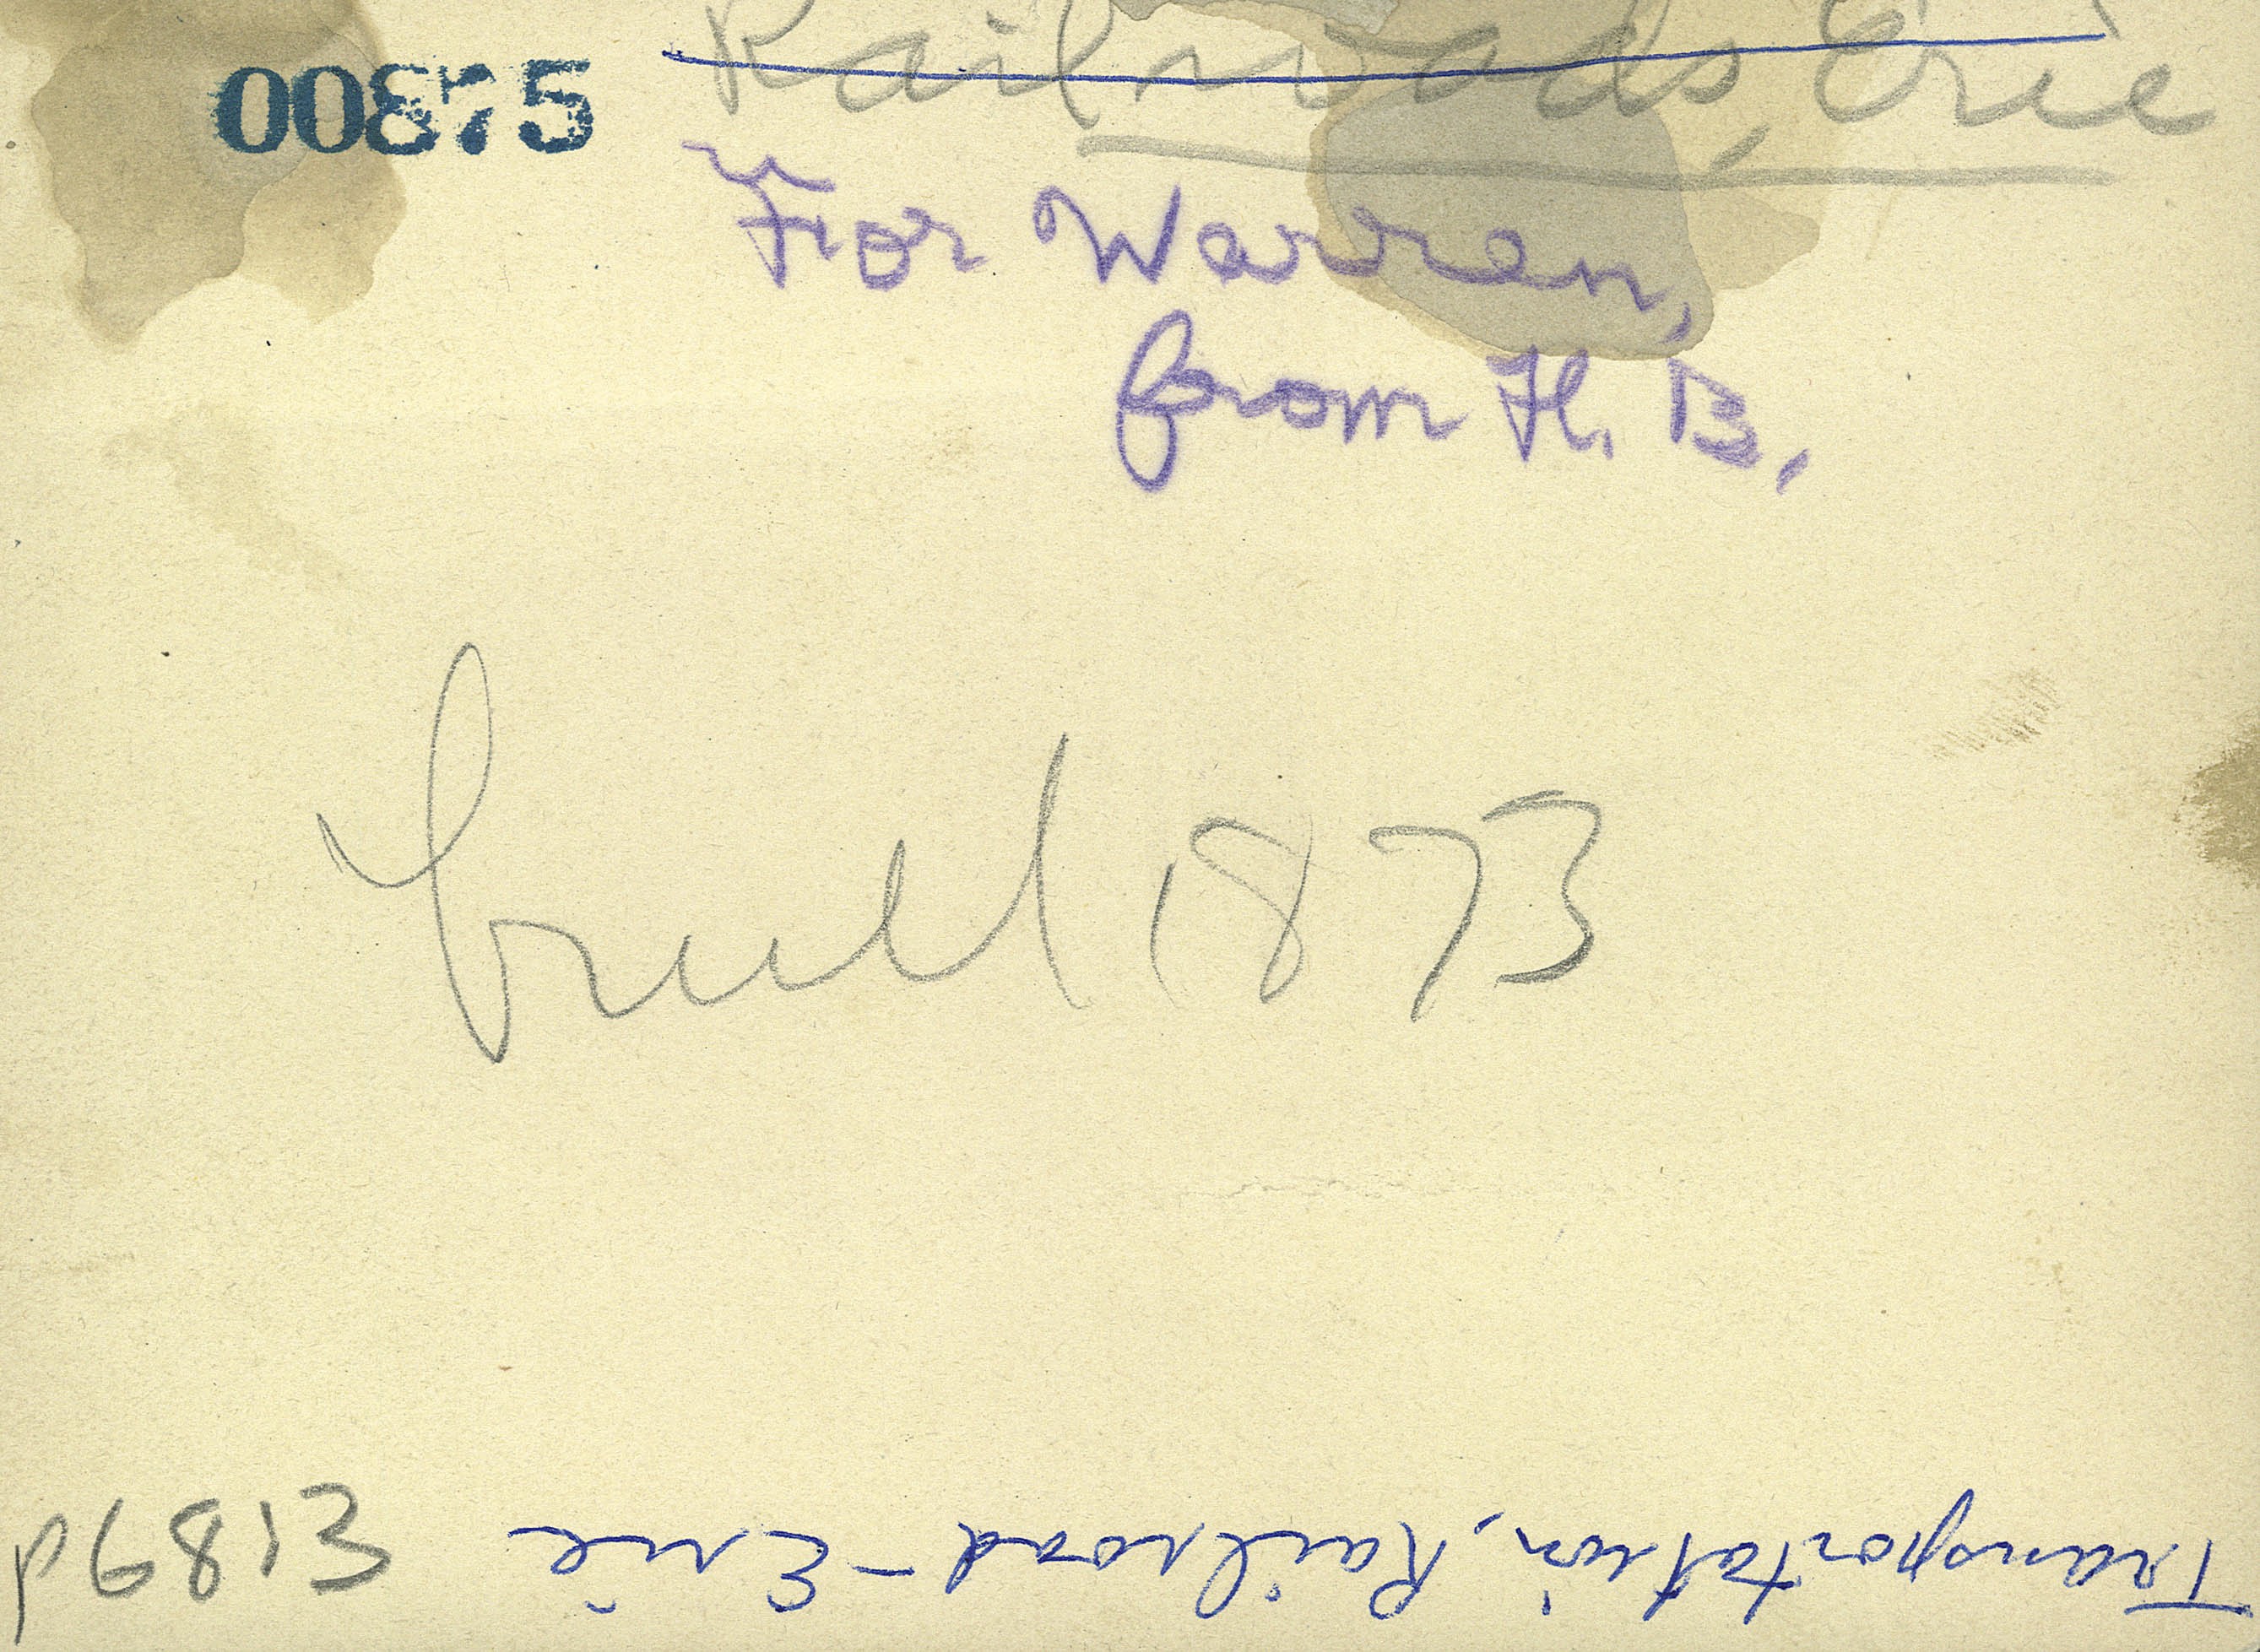 00875
Railroads, Erie
For Warren,
from H. B.
1873
p6813
Transportation, Railroad - Erie